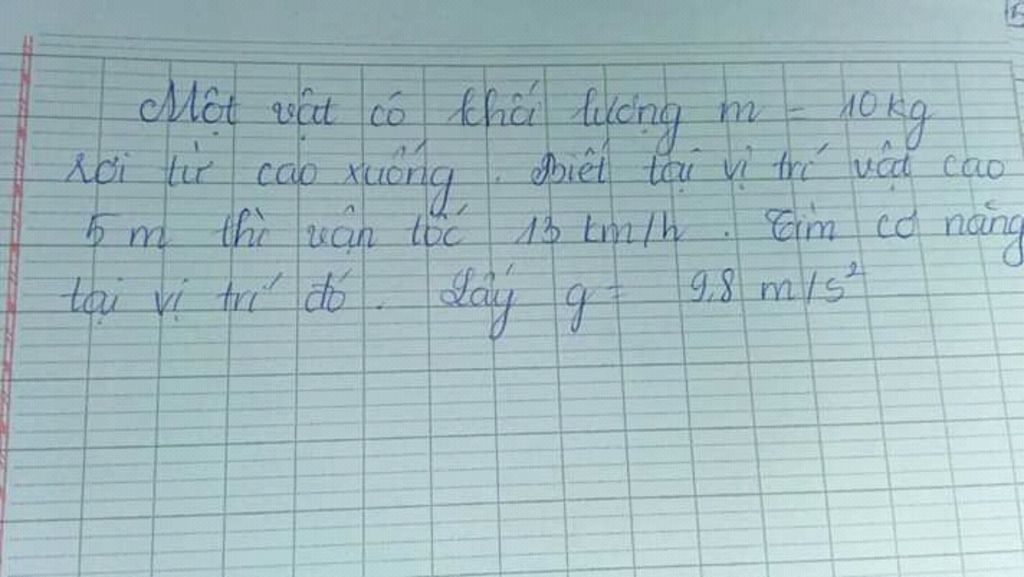 Một vật có khối lượng m = 10 kg
rơi từ cao xuống. Biết tại vị trí vật cao
5 m thì vận tốc 13 km/h. Tìm cơ năng
tại vị trí đó. Lấy g = 9,8 m/s²